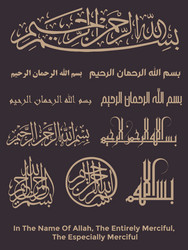 بسم الله الرحمن الرحيم
بسم الله الرحمان الرحيم بسم الله الرحمان الرحيم
بسم الله الرحمان الرحيم بسم الله الرحمن الرحيم
بسم الله الرحمن الرحيم بسم الله الرحمن الرحيم
بسم الله الرحمن الرحيم بسم الله الرحمن الرحيم بسم الله
In The Name Of Allah, The Entirely Merciful,
The Especially Merciful